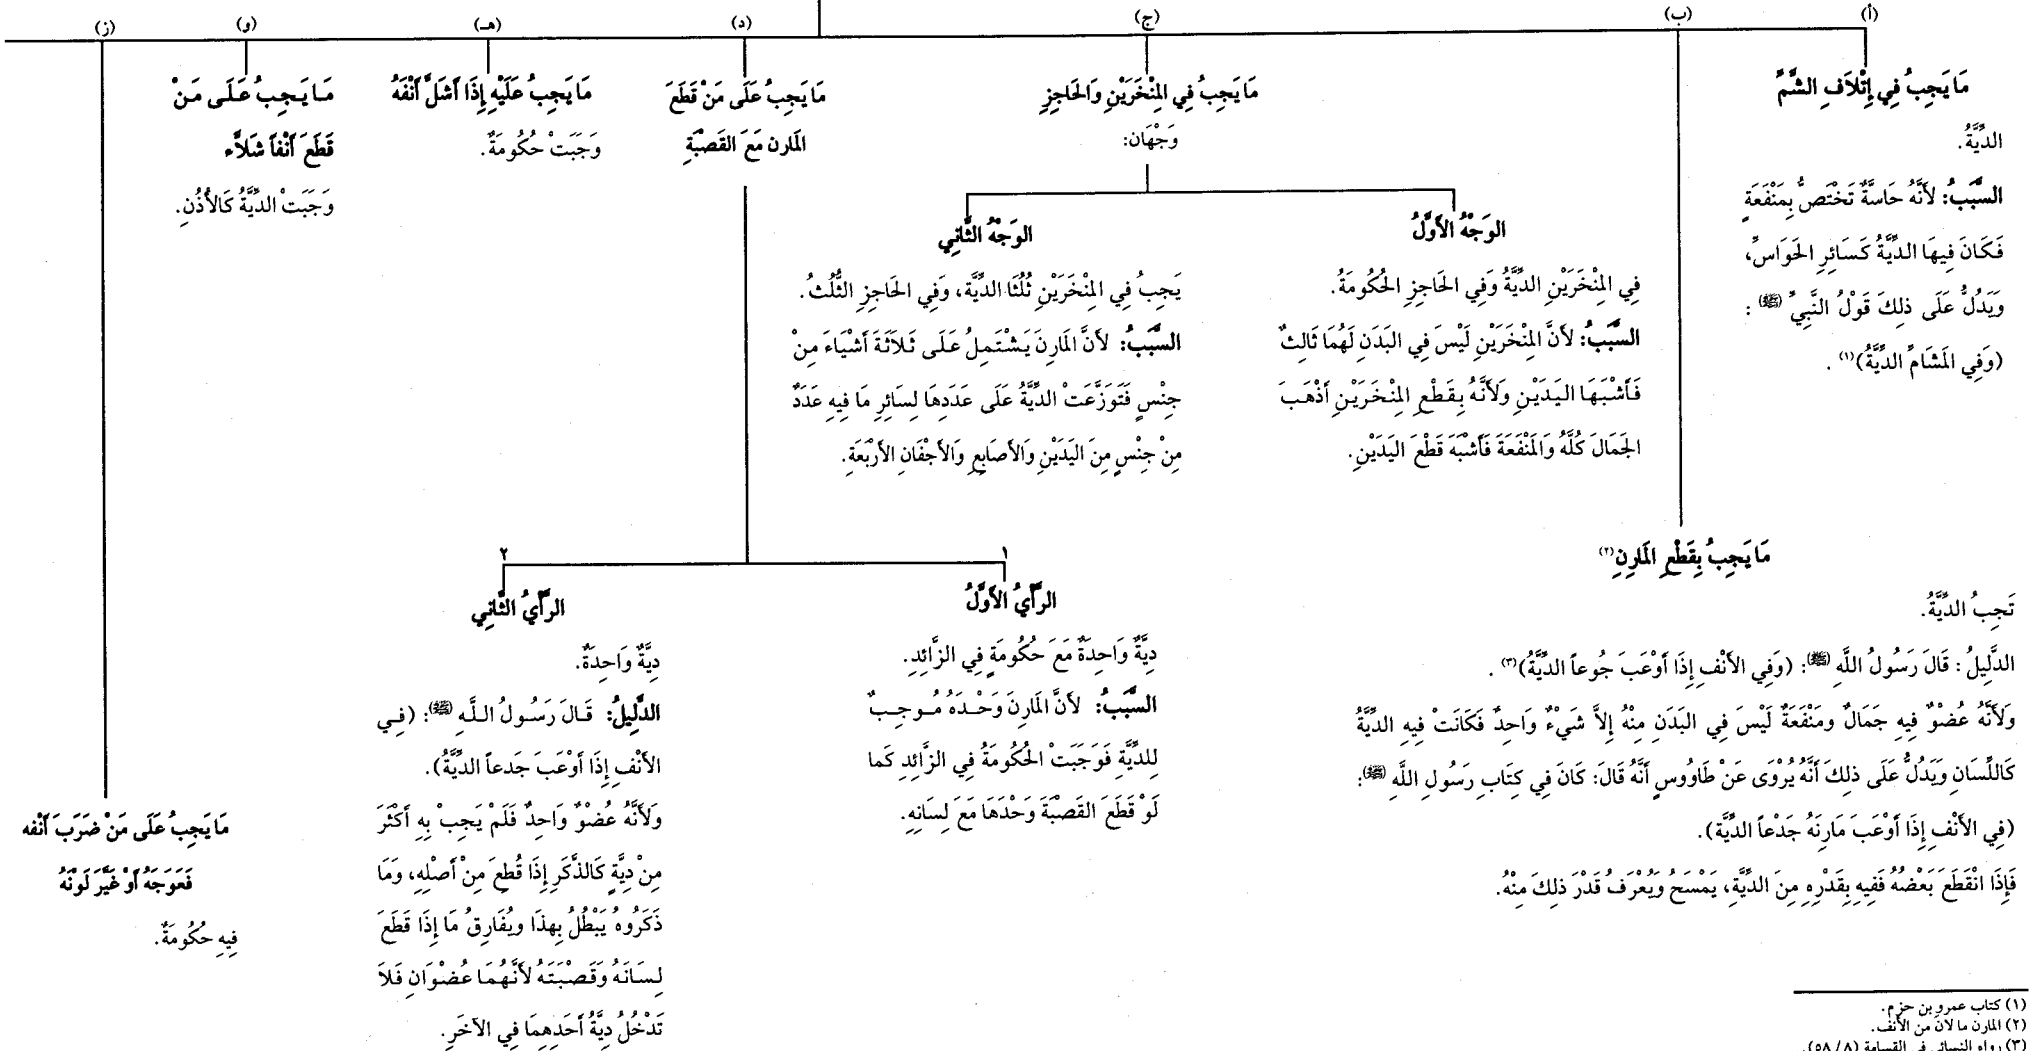 (أ)
مَا يَجِبُ فِي إِتْلَافِ الشَّمِّ
الدِّيَّةُ.
السَّبَبُ: لأَنَّه حَاسَّةٌ تَخْتَصُّ بِمَنْفَعَةٍ
فَكَانَ فِيهَا الدِّيَّةُ كَسَائِرِ الحَوَاسِّ،
وَيَدُلُّ عَلَى ذلِكَ قَوْلُ النَّبِيِّ (ﷺ) :
(وَفِي المَشَامِّ الدِّيَّةُ)(١) .
(ب)
مَا يَجِبُ بِقَطْعِ المَارِنِ(٢)
تَجِبُ الدِّيَّةُ.
الدَّلِيلُ : قَالَ رَسُولُ اللَّهِ (ﷺ): (وَفِي الأَنْفِ إِذَا أَوْعَبَ جُوعاً الدِّيَّةُ)(٣) .
وَلأَنَّهُ عُضْوٌ فِيهِ جَمَالٌ ومَنْفَعَةٌ لَيْسَ فِي البَدَنِ مِنْهُ إِلاَّ شَيْءٌ وَاحِدٌ فَكَانَتْ فِيهِ الدِّيَّةُ
كَاللِّسَانِ وَيَدُلُّ عَلَى ذلِكَ أَنَّهُ يُرْوَى عَنْ طَاوُوسٍ أَنَّهُ قَالَ: كَانَ فِي كِتَابِ رَسُولِ اللَّهِ (ﷺ):
(فِي الأَنْفِ إِذَا أَوْعَبَ مَارِنَهُ جَدْعاً الدِّيَّةَ).
فَإِذَا انْقَطَعَ بَعْضُهُ فَفِيهِ بِقَدْرِهِ مِنَ الدِّيَّةِ، يَمْسَحُ وَيُعْرَفُ قَدْرَ ذلِكَ مِنْهُ.
(ج)
مَا يَجِبُ فِي المِنْخَرَيْنِ وَالحَاجِزِ
وَجْهَان:
الوَجْهُ الأَوَّلُ
فِي المِنْخَرَيْنِ الدِّيَّةُ وَفِي الحَاجِزِ الحُكُومَةُ.
السَّبَبُ: لأَنَّ المِنْخَرَيْنِ لَيْسَ فِي البَدَنِ لَهُمَا ثَالِثٌ
فَأَشْبَهَا اليَدَيْنِ وَلأَنَّهُ بِقَطْعِ المِنْخَرَيْنِ أَذْهَبَ
الجَمَالَ كُلَّهُ وَالمَنْفَعَةَ فَأَشْبَهَ قَطْعَ اليَدَيْنِ.
الوَجْهُ الثَّانِي
يَجِبُ فِي المِنْخَرَيْنِ ثُلُثَا الدِّيَّة، وَفِي الحَاجِزِ الثُّلُثُ.
السَّبَبُ: لأَنَّ المَارِنَ يَشْتَمِلُ عَلَى ثَلاَثَةَ أَشْيَاءَ مِنْ
جِنْسٍ فَتَوَزَّعَتْ الدِّيَّةُ عَلَى عَدَدِهَا لِسَائِرِ مَا فِيهِ عَدَدٌ
مِنْ جِنْسٍ مِنَ اليَدَيْنِ وَالأَصَابِعِ وَالأَجْفَانِ الأَرْبَعَةِ.
(د)
مَا يَجِبُ عَلَى مَنْ قَطَعَ
المَارِن مَعَ القَصَبَةِ
١
الرَّأْيُ الأَوَّلُ
دِيَّةٌ وَاحِدَةٌ مَعَ حُكُومَةٍ فِي الزَّائِدِ.
السَّبَبُ: لأَنَّ المَارِنَ وَحْدَهُ مُوجِبٌ
لِلدِّيَّةِ فَوَجَبَتْ الحُكُومَةُ فِي الزَّائِدِ كَما
لَوْ قَطَعَ القَصْبَةَ وَحْدَهَا مَعَ لِسَانِهِ.
٢
الرَّأْيُ الثَّانِي
دِيَّةٌ وَاحِدَةٌ.
الدَّلِيلُ: قَالَ رَسُولُ اللَّهِ (ﷺ): (فِي
الأَنْفِ إِذَا أَوْعَبَ جَدعاً الدِّيَّةُ).
وَلأَنَّهُ عُضْوٌ وَاحِدٌ فَلَمْ يَجِبْ بِهِ أَكْثَرَ
مِنْ دِيَّةٍ كَالذَّكَرِ إِذَا قُطِعَ مِنْ أَصْلِهِ، وَمَا
ذَكَرُوهُ يَبْطُلُ بِهذَا ويُفَارِقُ مَا إِذَا قَطَعَ
لِسَانَهُ وَقَصْبَتَهُ لأَنَّهُمَا عُضْوَانِ فَلاَ
تَدْخُلُ دِيَّةُ أَحَدِهِمَا فِي الآخَرِ.
(هـ)
مَا يَجِبُ عَلَيْهِ إِذَا أَشَلَّ أَنْفَهُ
وَجَبَتْ حُكُومَةٌ.
(و)
مَا يَجِبُ عَلَى مَنْ
قَطَعَ أَنْفاً شَلاَّء
وَجَبَتْ الدِّيَّةُ كَالأُذُنِ.
(ز)
مَا يَجِبُ عَلَى مَنْ ضَرَبَ أَنْفه
فَعَوَجَهُ أَوْ غَيَّرَ لَوْنَهُ
فِيهِ حُكُومَةٌ.
(١) كتاب عمرو بن حزم.
(٢) المارن ما لانَ من الأنف.
(٣) رواه النسائي في القسامة (٨ / ٥٨).